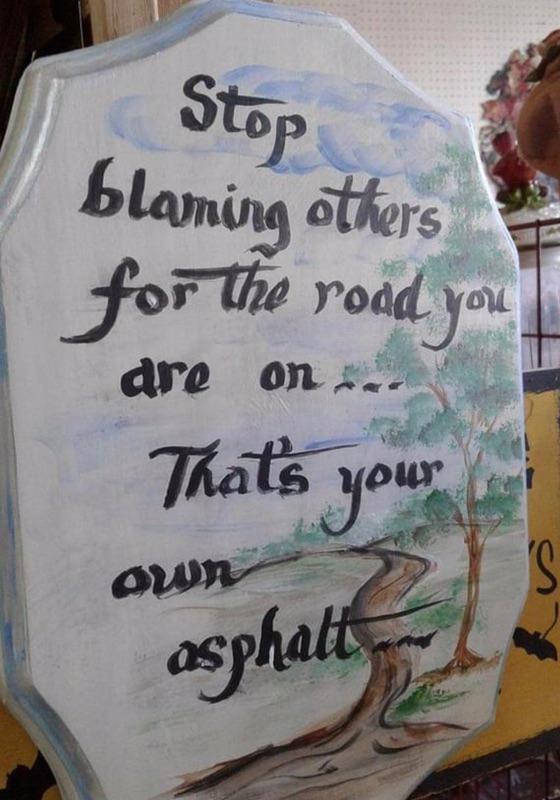 Stop
blaming others
for the road you
are on...
That's your
own
asphalt...